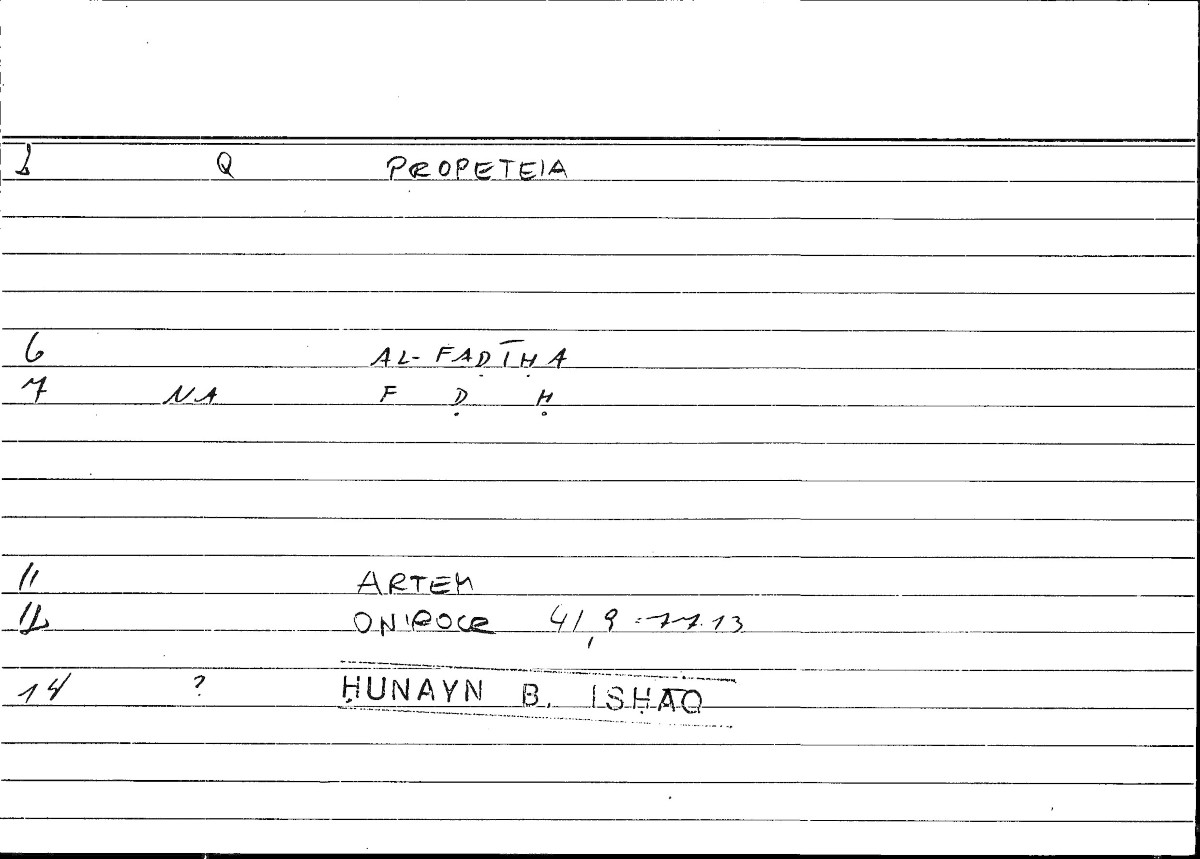 1 Q PROPETEIA
6 AL-FAḌĪḤA
7 NA F Ḍ Ḥ
11 ARTEM
12 ONIROCR 41,9 : 77.13
14 ? ḤUNAYN B. ISḤĀQ